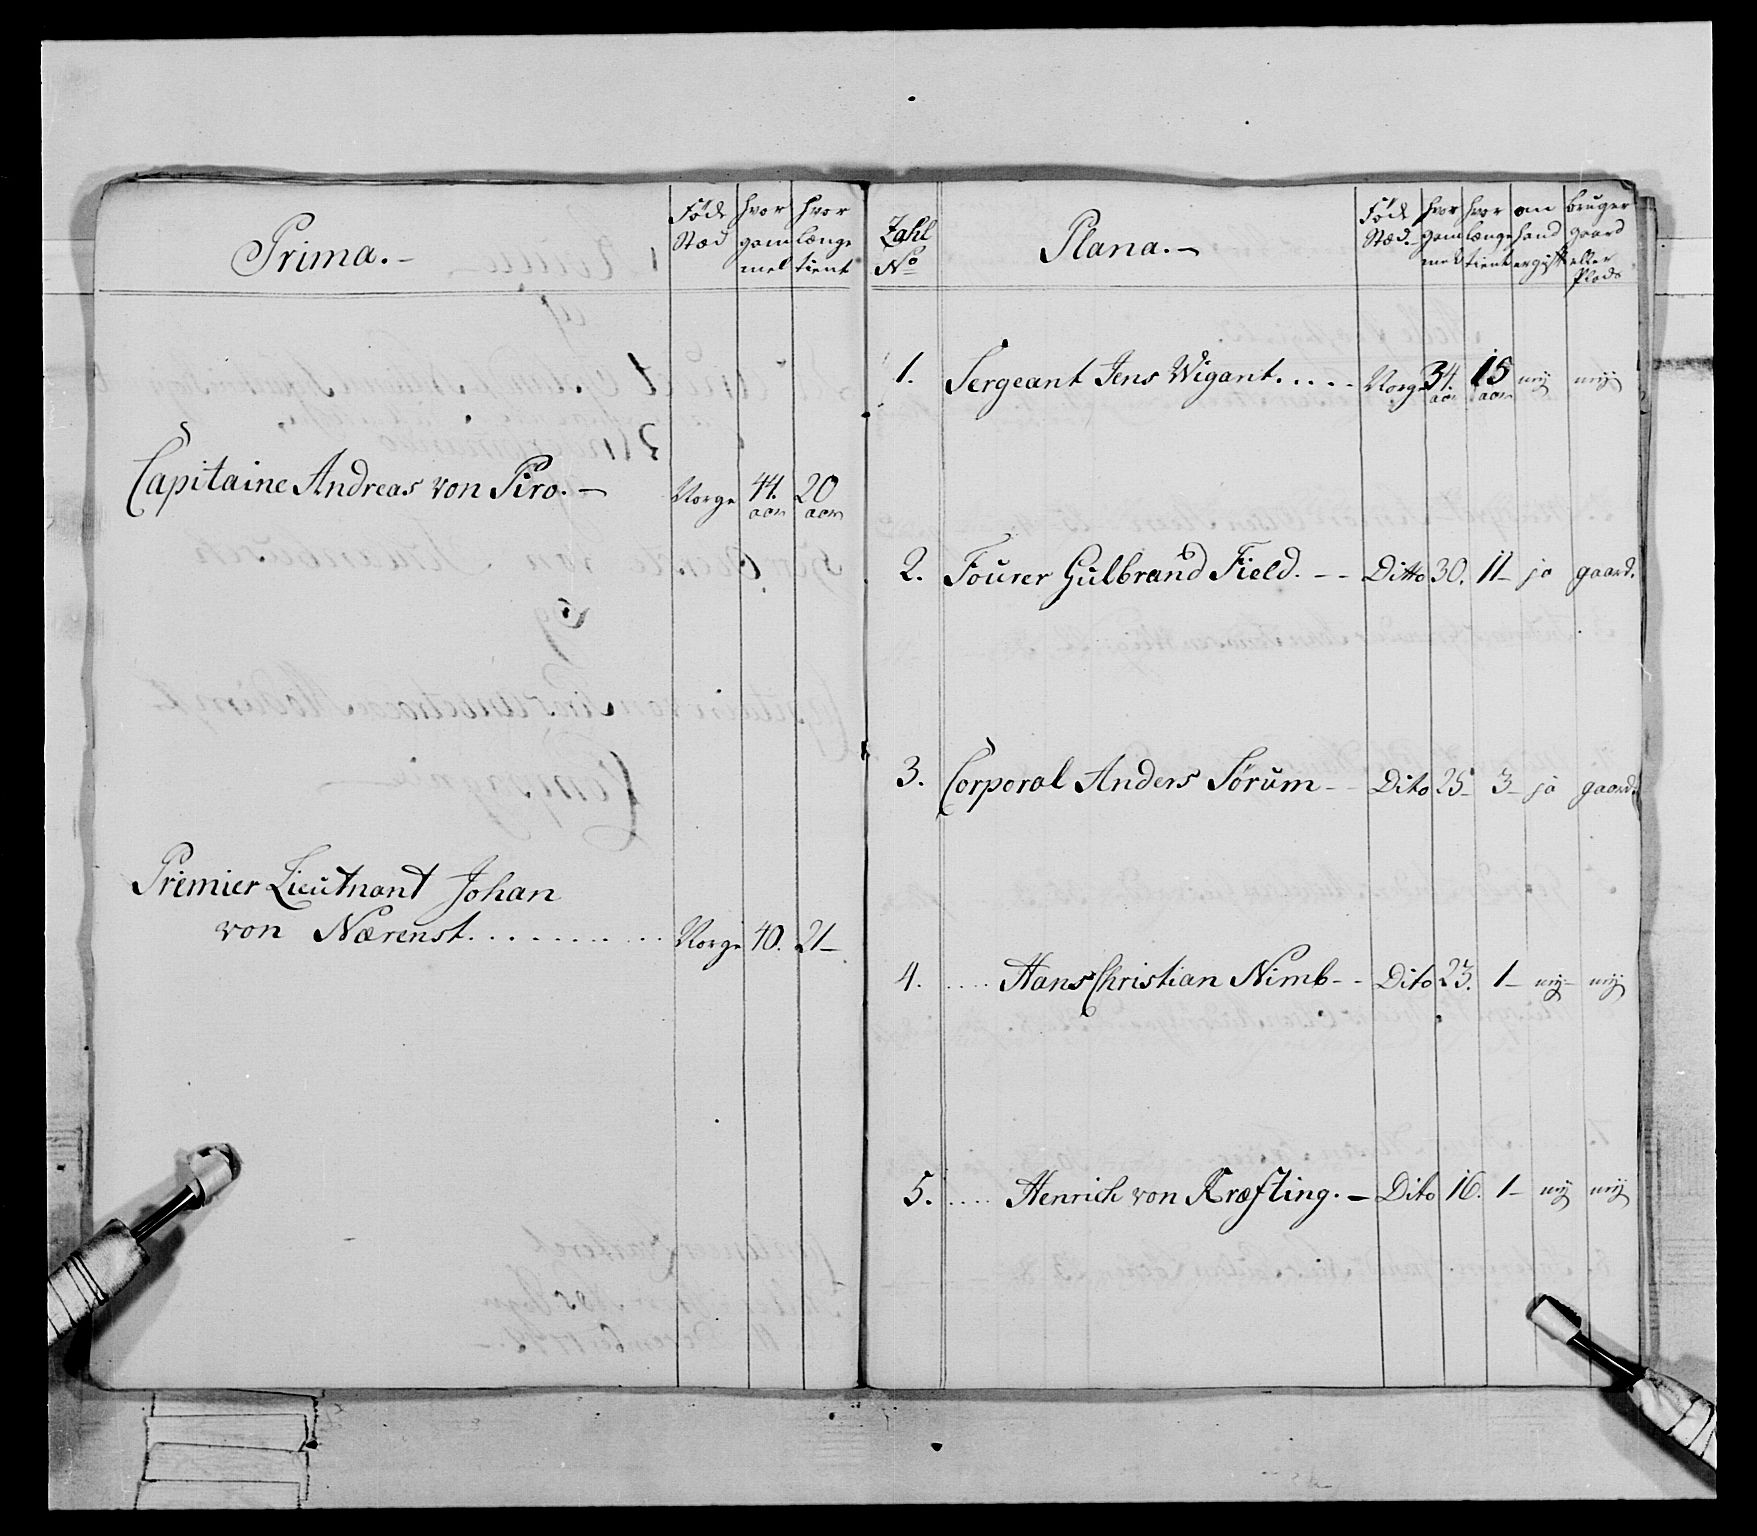 Prima.-
Føde Stæd
hvor gammel
hvor længe tient
Capitaine Andreas von Piro. - Norge 44. aar 20 aar
Premier Lieutnant Johan
von Nærenst........... Norge 40. 21-
Zahl No
Plana.-
Føde Stæd.
hvor gammel
hvor længe tient
om hand er gift
bruger gaard eller Plads
1. Sergeant Jens Wigant..... Norge 34. aar 15 aar nej nej
2. Fourer Gulbrand Field. -- Ditto 30. 11- ja gaard.
3. Corporal Anders Sørum -- Dito 25- 3- ja gaard.
4. .... Hans Christian Nimb -- Dito 23. 1- nej- nej
5. .... Henrich von Kræfting. - Dito 16. 1- nej nej